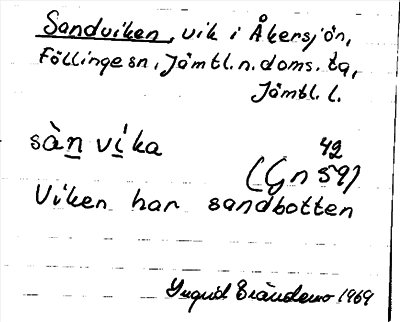 Sandviken, vik i Åkersjön,
Föllinge sn, Jämtl. n. doms. tg,
Jämtl. l.
sàn víka
42
(Gn 59)
Viken har sandbotten
Ingrid 1969